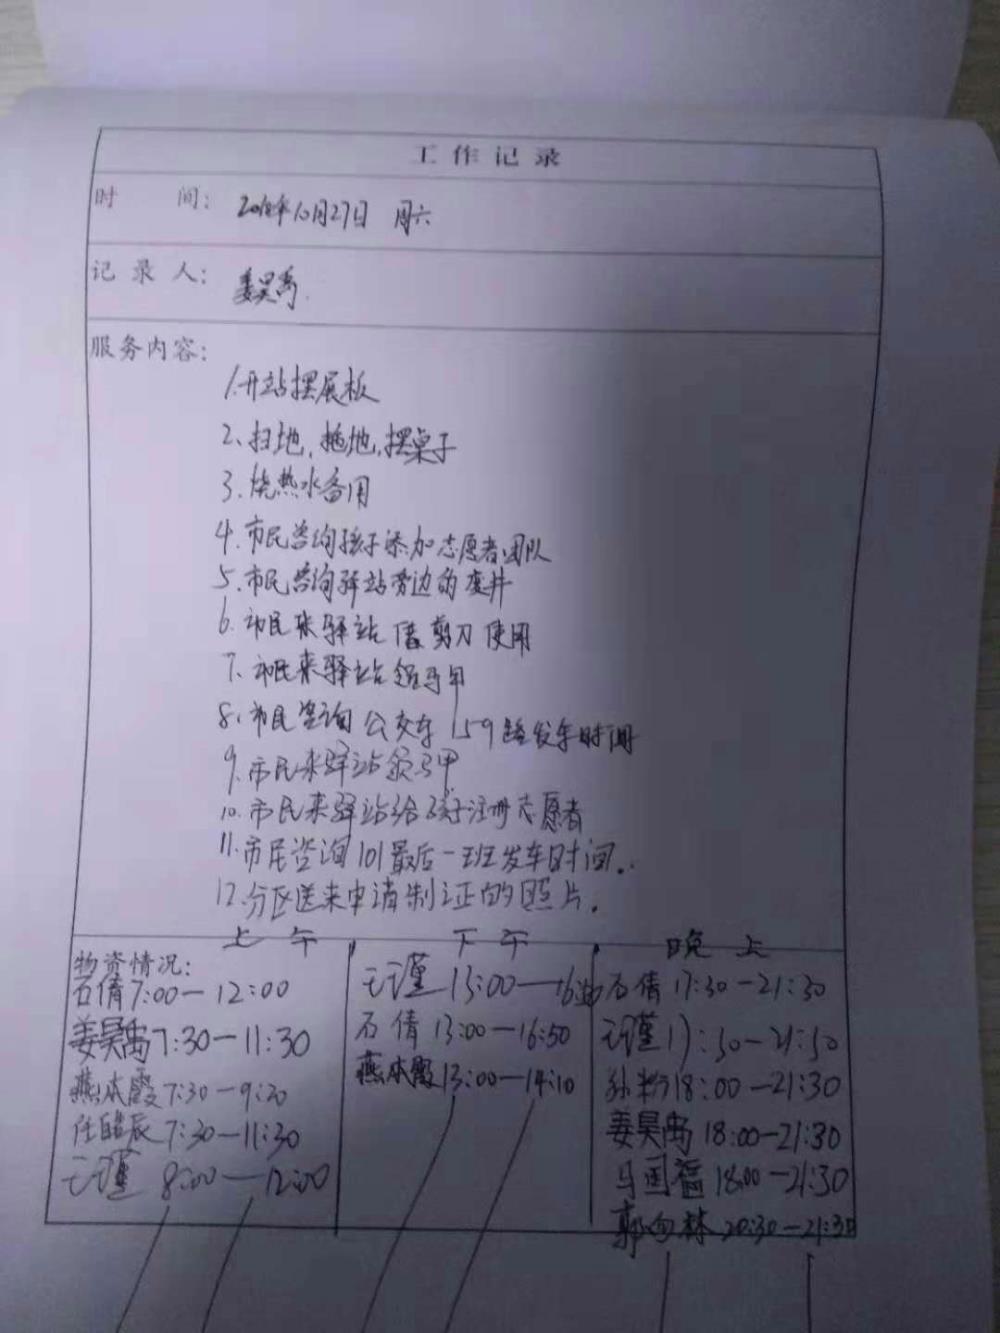 工作记录
时 间: 2018年10月27日 周六
记录人: 姜昊禹
服务内容:
1.开站摆展板
2、扫地,拖地,摆桌子
3.烧热水备用
4.市民咨询孩子添加志愿者团队
5.市民咨询驿站旁边的废井
6.市民来驿站借剪刀使用
7.市民来驿站领马甲
8.市民咨询公交车159路发车时间
9.市民来驿站领马甲
10.市民来驿站给孩子注册志愿者
11.市民咨询101最后一班发车时间.
12.分区送来申请制证的照片.
上午 下午 晚上
物资情况:
石倩 7:00—12:00
姜昊禹 7:30—11:30
燕本霞 7:30—9:30
任 辰 7:30—11:30
王瑾 8:00—12:00
王瑾 13:00—
石倩 13:00—16:50
燕本霞 13:00—14:10
石倩 17:30—21:30
王瑾 17:30—21:30
孙 18:00—21:30
姜昊禹 18:00—21:30
马国福 18:00—21:30
郭向林 20:30—21:30